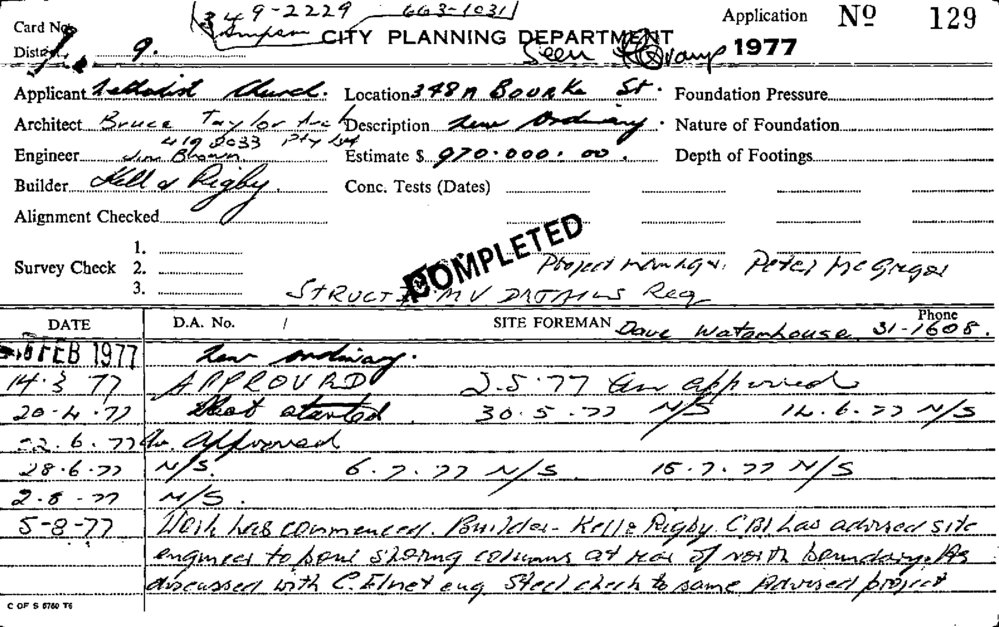 349-2229 663-1031
Card No. Simpson CITY PLANNING DEPARTMENT Application No 129
District 9. Seen 1977
Applicant Methodist Church. Location 348A BOURKE St. Foundation Pressure
Architect Bruce Taylor Arch Pty Ltd Description New Ordinary. Nature of Foundation
419 2033
Engineer Jim Brown Estimate $ 970.000.00. Depth of Footings
Builder Kell & Rigby. Conc. Tests (Dates)
Alignment Checked
COMPLETED
1.
Survey Check 2. Project Manager. Peter McGregor
3. STRUCT DETAILS Req
DATE D.A. No. / SITE FOREMAN Dave Waterhouse Phone 31-1608.
FEB 1977 New ordinary.
14.3.77 APPROVED 2.5.77 approved
20.4.77 started 30.5.77 N/S 14.6.77 N/S
22.6.77 Approved
28.6.77 N/S. 6.7.77 N/S 15.7.77 N/S
2.8.77 N/S.
5-8-77 Work has commenced. Builder- Kell & Rigby. CBI has advised site
engineer to shoring columns at rear of north boundary. As
discussed with C. eng Steel check to same Advised project
C OF S 6760 T6